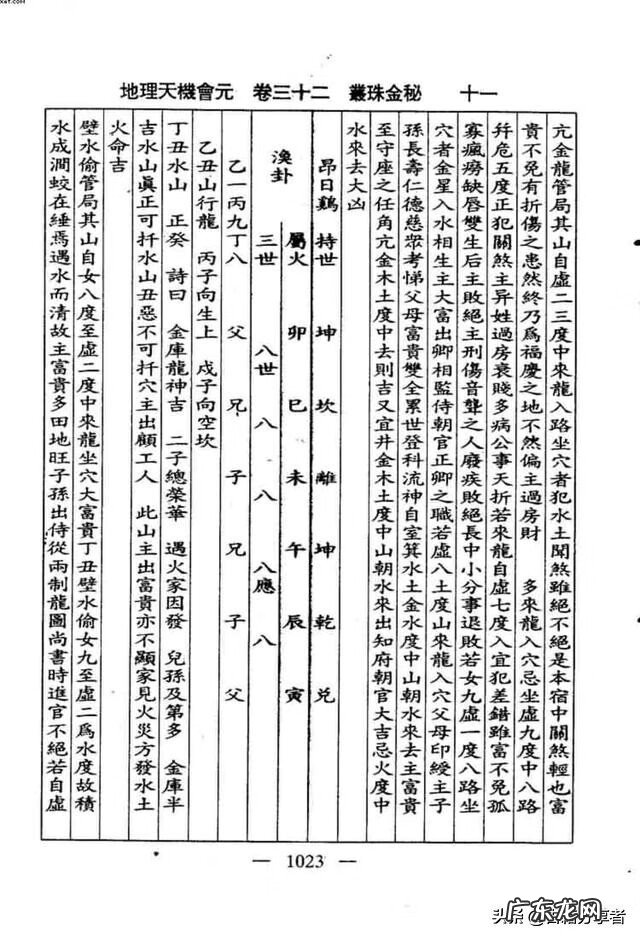 地理天機會元　卷三十二　叢珠金秘　十一
亢金龍管局其山自虛二三度中來龍入路坐穴者犯水土閞煞雖絕不絕是本宿中關煞輕也富
貴不免有折傷之患然終乃爲福慶之地不然偏主過房財　多來龍入穴忌坐虛九度中八路
幷危五度正犯關煞主异姓過房衰賤多病公事夭折若來龍自虛七度入宜犯差錯雖富不免孤
寡瘋癆缺唇雙生后主敗絕主刑傷音聾之人廢疾敗絕長中小分事退敗若女九虛一度八路坐
穴者金星入水相生主大富出卿相監侍朝官正卿之職若虛八土度山來龍入穴父母印綬主子
孫長壽仁德慈眾考悌父母富貴雙全累世登科流神自室箕水土金水度中山朝水來去主富貴
至守座之任角亢金木土度中去則吉又宜井金木土度中山朝水來出知府朝官大吉忌火度中
水來去大凶
昂日鷄　持世　坤　坎　離　坤　乾　兌
渙卦　屬火　卯　巳　未　午　辰　寅
三世　八世　八　八　八應　八
乙一丙九丁八　父　兄　子　兄　子　父
乙丑山行龍　丙子向生上　戊子向空坎
丁丑水山　正癸　詩曰　金庫龍神吉　二子總榮華　遇火家因發　兒孫及第多　金庫半
吉水山眞正可扦水山丑惡不可扦穴主出顧工人　此山主出富貴亦不顯家見火災方發水土
火命吉
壁水偷管局其山自女八度至虛二度中來龍坐穴大富貴丁丑壁水偷女九至虛二爲水度故積
水成澗蛟在綞焉遇水而清故主富貴多田地旺子孫出侍從兩制龍圖尚書時進官不絕若自虛
— 1023 —
头条
广东龙网
享者